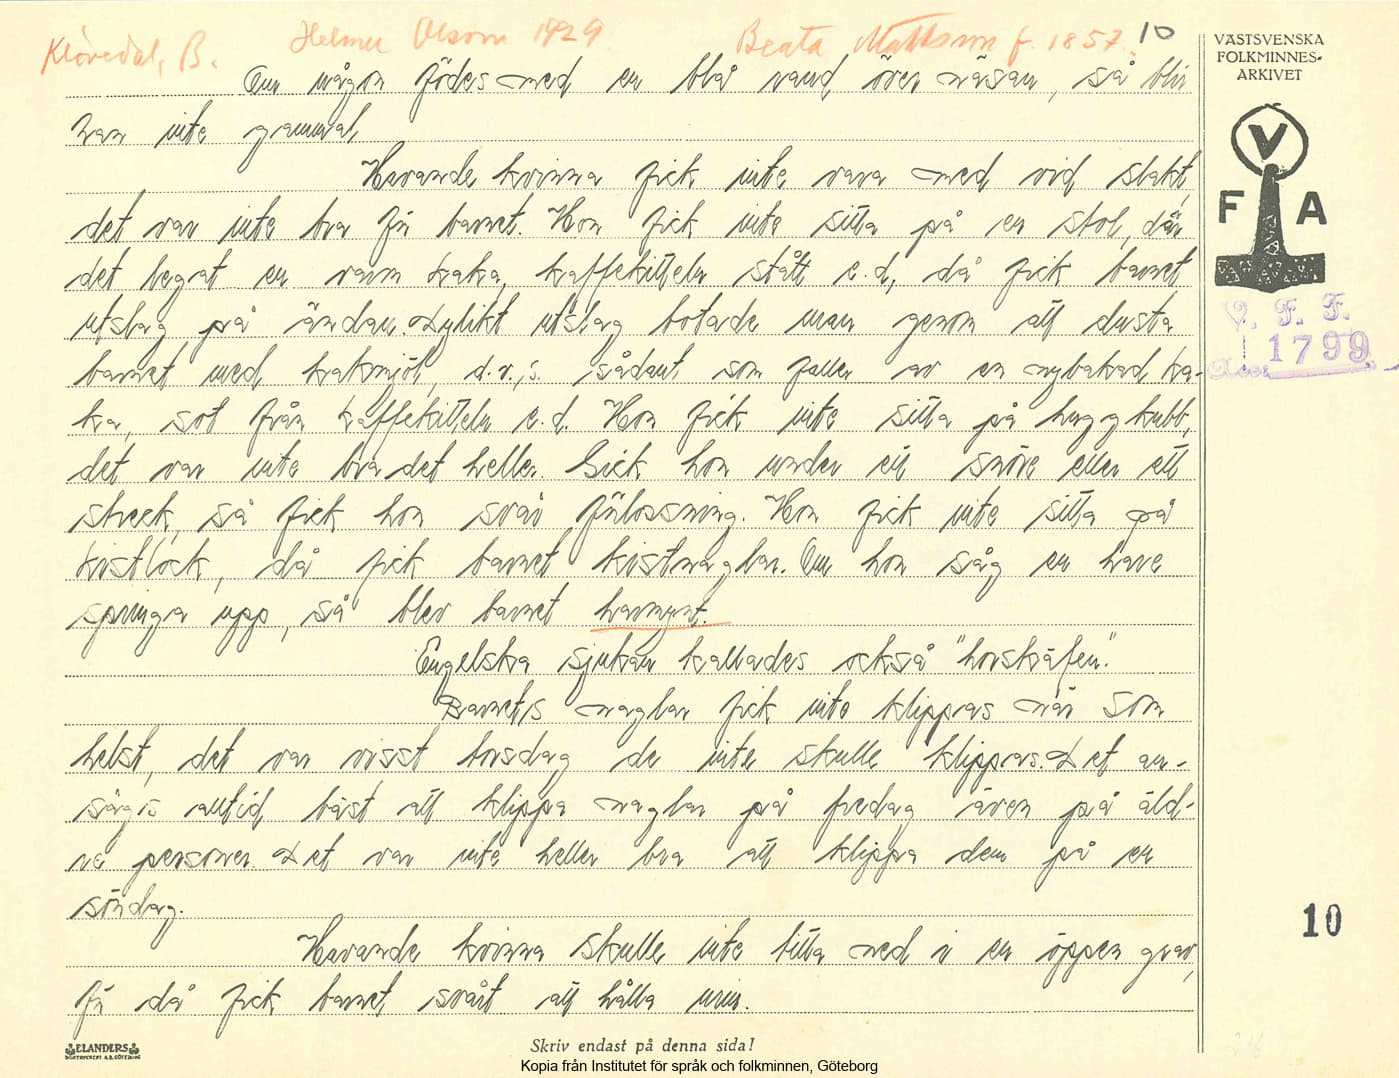 Klövedal, B. Helmer Olsson 1929 Beata Mattsson f. 1857. 10
VÄSTSVENSKA
FOLKMINNES-
ARKIVET
Om någon födes med en blå rand över näsan, så blir
han inte gammal.
Havande kvinna fick inte vara med vid slakt,
det var inte bra för barnet. Hon fick inte sitta på en stol, där
det legat en varm kaka, kaffekitteln stått e.d., då fick barnet
utslag på ändan. Dylikt utslag botade man genom att dusta
barnet med kakmjöl, d.v.s. sådant som faller av en nybakad ka-
ka, sot från kaffekitteln e.d. Hon fick inte sitta på huggkubb,
det var inte bra det heller. Gick hon under ett snöre eller ett
streck, så fick hon svår förlossning. Hon fick inte sitta på
kistlock, då fick barnet kistnaglar. Om hon såg en hare
springa upp, så blev barnet harmynt.
Engelska sjukan kallades också "horskäfen".
Barnets naglar fick inte klippas när som
helst, det var visst torsdag de inte skulle klippas. Det an-
sågs alltid bäst att klippa naglar på fredag även på äld-
re personer. Det var inte heller bra att klippa dem på en
söndag.
Havande kvinna skulle inte titta ned i en öppen grav,
för då fick barnet svårt att hålla urin.
V
F A
V. F. F.
Acc. 1799
10
ELANDERS
Skriv endast på denna sida!
Kopia från Institutet för språk och folkminnen, Göteborg